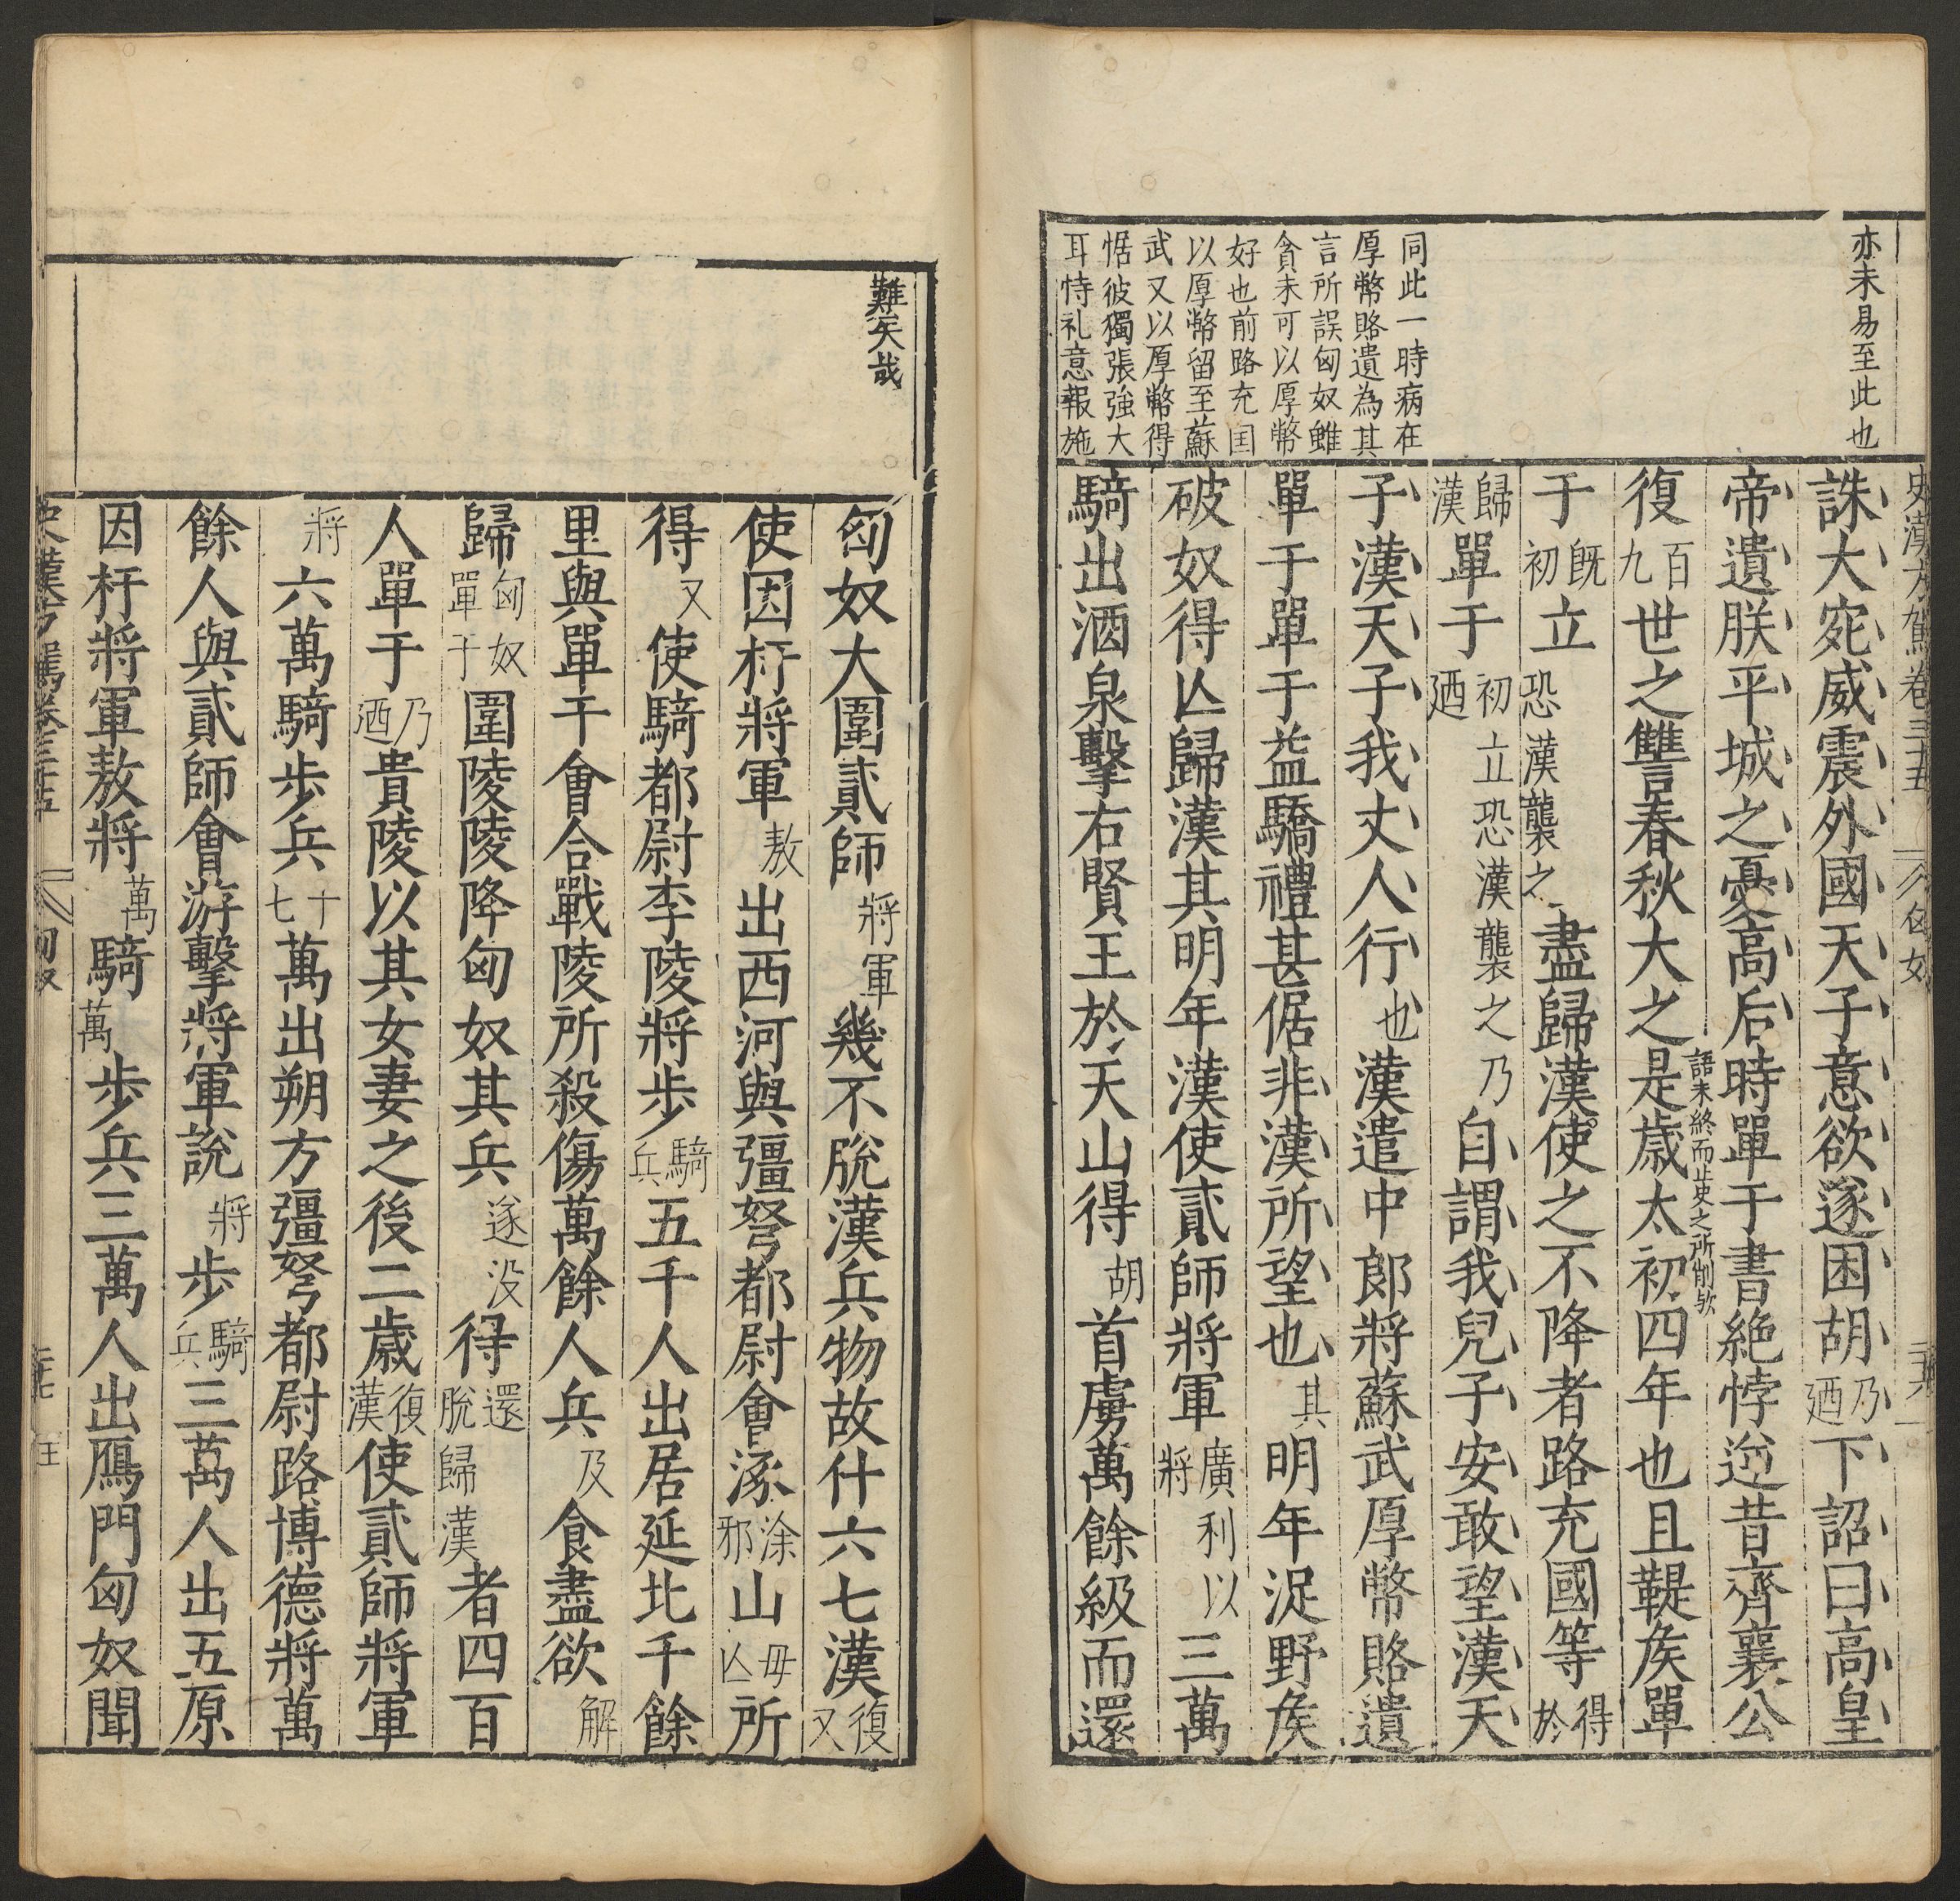 亦未易至此也
同此一時病在
厚幣賂遺為其
言所誤匈奴雖
貪未可以厚幣
好也前路充国
以厚幣留至蘇
武又以厚幣得
倨彼獨張強大
耳恃礼意報施
誅大宛威震外國天子意欲遂困胡乃廼下詔曰高皇
帝遺朕平城之憂高后時單于書絶悖逆昔齊襄公
語未終而止史之所削欤
復百九世之讐春秋大之是歳太初四年也且鞮矦單
于既初立恐漢襲之盡歸漢使之不降者路充國等得於
歸漢單于初廼立恐漢襲之乃自謂我兒子安敢望漢天
子漢天子我丈人行也漢遣中郎將蘇武厚幣賂遺
單于單于益驕禮甚倨非漢所望也其明年浞野矦
破奴得亾歸漢其明年漢使貳師將軍廣將利以三萬
騎出酒泉擊右賢王於天山得胡首虜萬餘級而還
難矣哉
匈奴大圍貳師將軍幾不脫漢兵物故什六七漢復又
使因杅將軍敖出西河與彊弩都尉會涿涂邪山毋亾所
得又使騎都尉李陵將步騎兵五千人出居延北千餘
里與單于會合戰陵所殺傷萬餘人兵及食盡欲解
歸匈單奴于圍陵陵降匈奴其兵遂没得還脫歸漢者四百
人單于乃廼貴陵以其女妻之後二歳復漢使貳師將軍
將六萬騎步兵十七萬出朔方彊弩都尉路博德將萬
餘人與貳師會游擊將軍說將步騎兵三萬人出五原
因杅將軍敖將萬騎萬步兵三萬人出鴈門匈奴聞